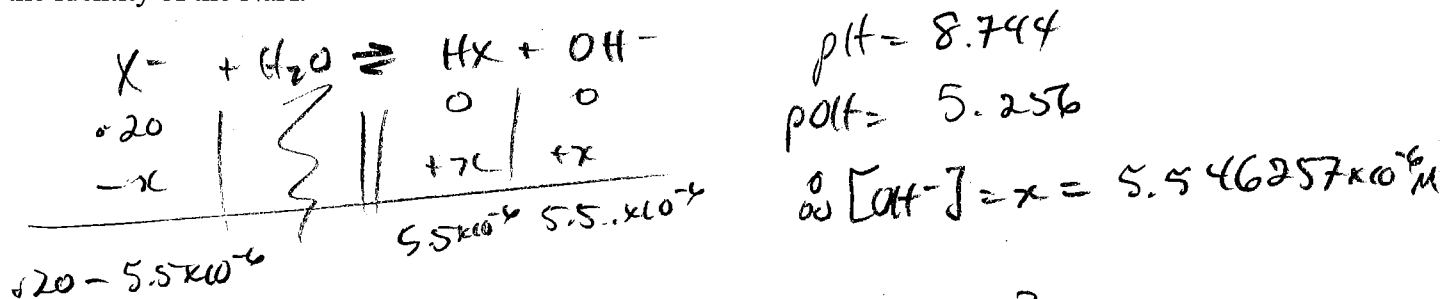 X⁻ + H₂O ⇌ HX + OH⁻
.20 0 0
-x +x +x
.20 - 5.5x10⁻⁶ 5.5x10⁻⁶ 5.5..x10⁻⁶
pH = 8.744
pOH = 5.256
∴ [OH⁻] = x = 5.546257x10⁻⁶ M